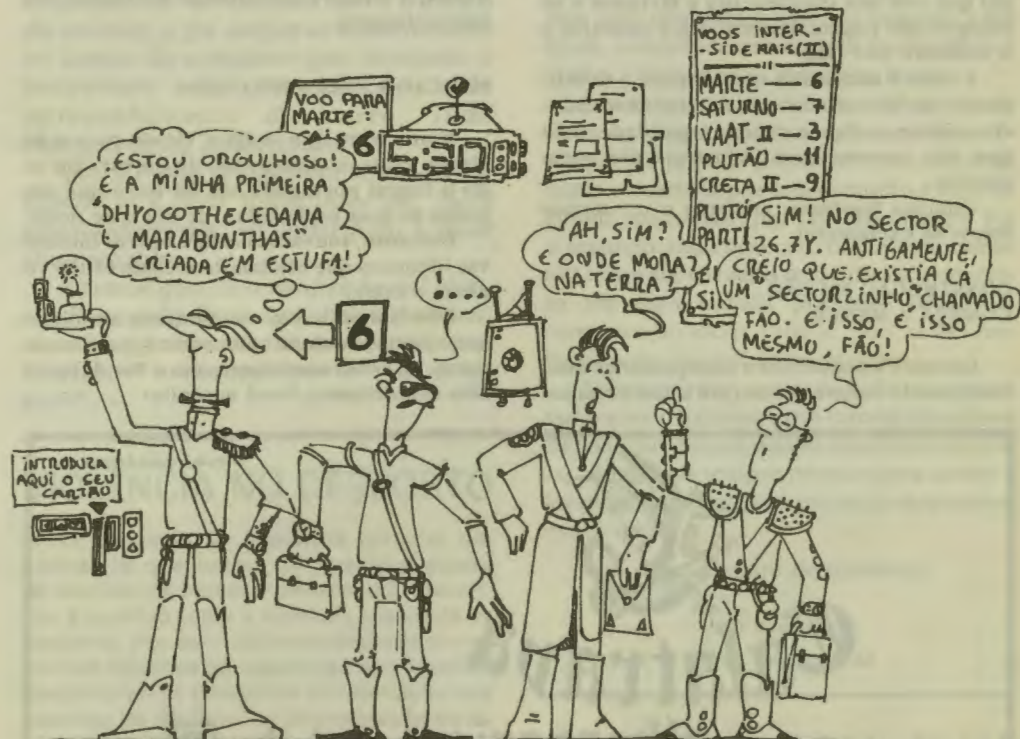 VOO PARA
MARTE:
SAÍS 6
5:30
VOOS INTER-
-SIDERAIS (II)
MARTE — 6
SATURNO — 7
VAAT II — 3
PLUTÃO — 11
CRETA II — 9
PLUTÓ
PARTI
ESTOU ORGULHOSO!
É A MINHA PRIMEIRA
"DHYOCOTHELEDANA
MARABUNTHAS"
CRIADA EM ESTUFA!
6
!...
AH, SIM?
E ONDE MORA?
NA TERRA?
SIM! NO SECTOR
26.7Y. ANTIGAMENTE,
CREIO QUE EXISTIA LÁ
UM "SECTORZINHO" CHAMADO
FÃO. É ISSO, É ISSO
MESMO, FÃO!
INTRODUZA
AQUI O SEU
CARTÃO